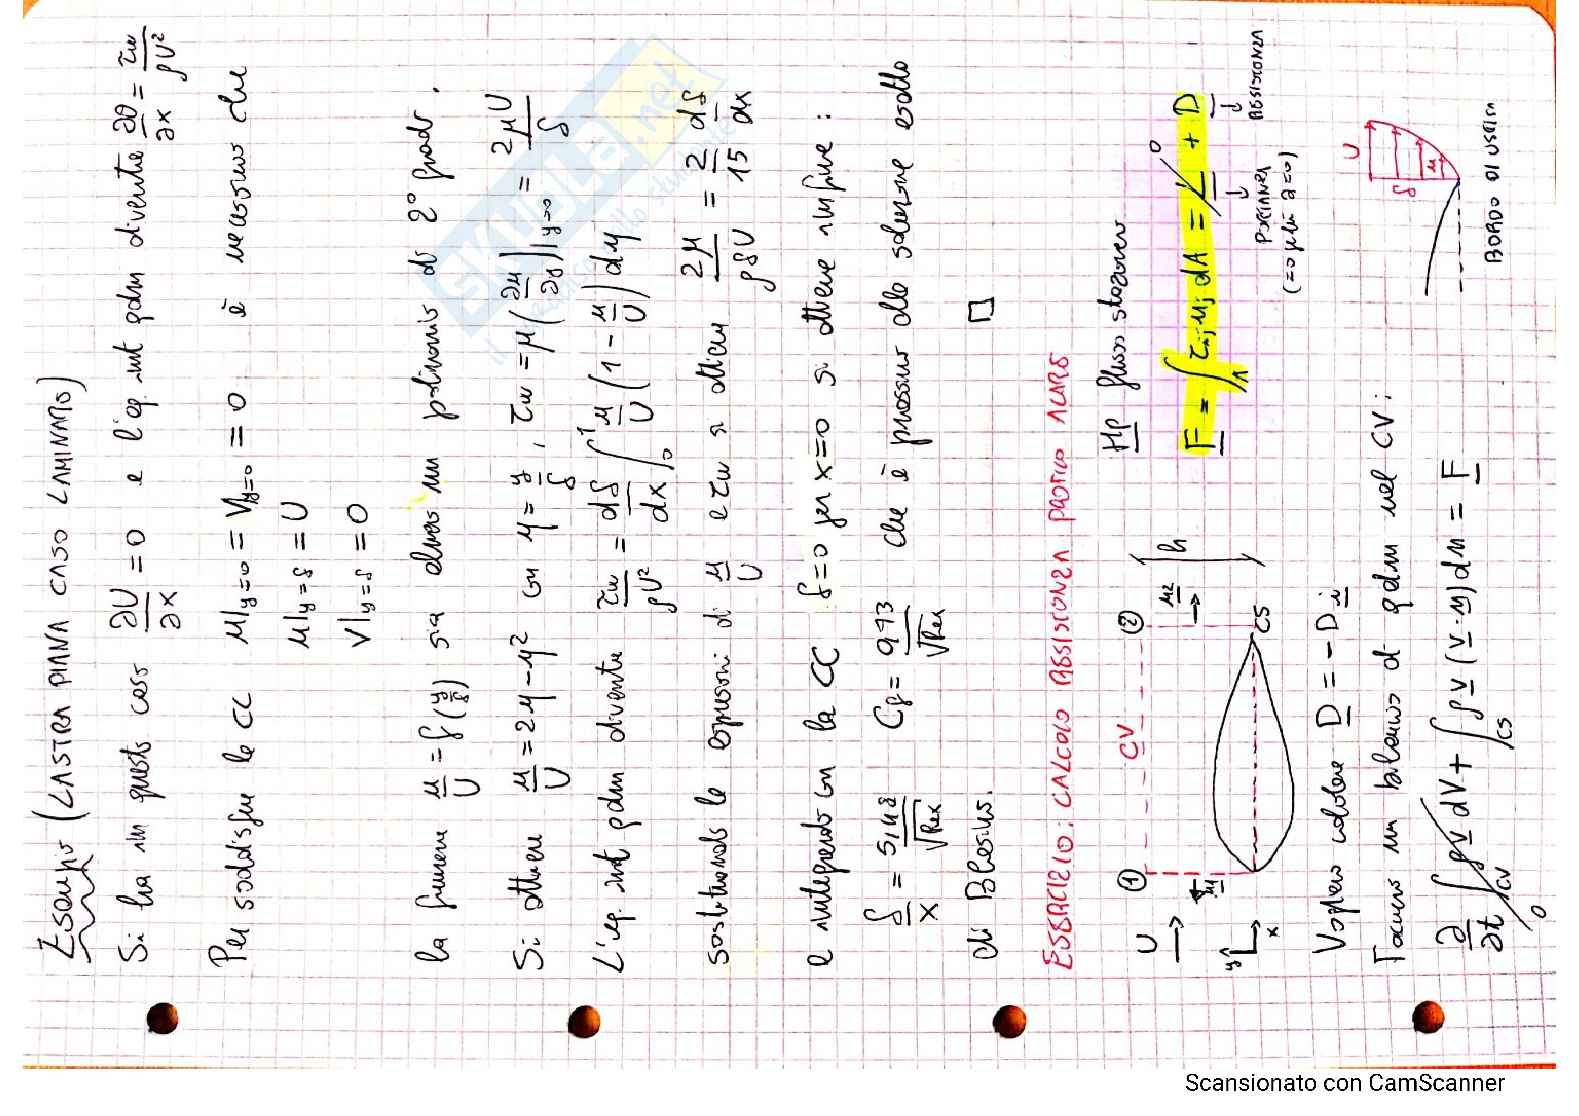 Esempio (LASTRA PIANA CASO LAMINARE)
Si ha in questo caso ∂U/∂x = 0 e l'eq. int qdm diventa ∂θ/∂x = τw/ρU²
Per soddisfare le CC u|y=0 = V|y=0 = 0 è necessario che
u|y=δ = U
V|y=δ = 0
la funzione u/U = f(y/δ) sia almeno un polinomio di 2° grado.
Si ottiene u/U = 2η - η² con η = y/δ, τw = μ(∂u/∂y)|y=0 = 2μU/δ
L'eq. int qdm diventa τw/ρU² = dδ/dx ∫₀¹ u/U (1 - u/U) dη
sostituendo le espressioni di u/U e τw si ottiene 2μ/ρδU = 2/15 dδ/dx
e integrando con la CC δ=0 per x=0 si ottiene infine:
δ/x = 5,48/√Rex Cf = 0,73/√Rex che è prossimo alla soluzione esatta
di Blasius. □
ESERCIZIO: CALCOLO RESISTENZA PROFILO ALARE
Hp flusso stazionario
F = ∫A τij nj dA = L + D
0
PORTANZA
(=0 perché α=0)
RESISTENZA
U
y
x
①
CV
②
u1
u2
h
CS
U
δ
u
BORDO DI USCITA
Vogliamo calcolare D = -D i
Facciamo un bilancio di qdm nel CV:
∂/∂t ∫CV ρV dV + ∫CS ρV (V·n) dA = F
0
skuola.net
Scansionato con CamScanner